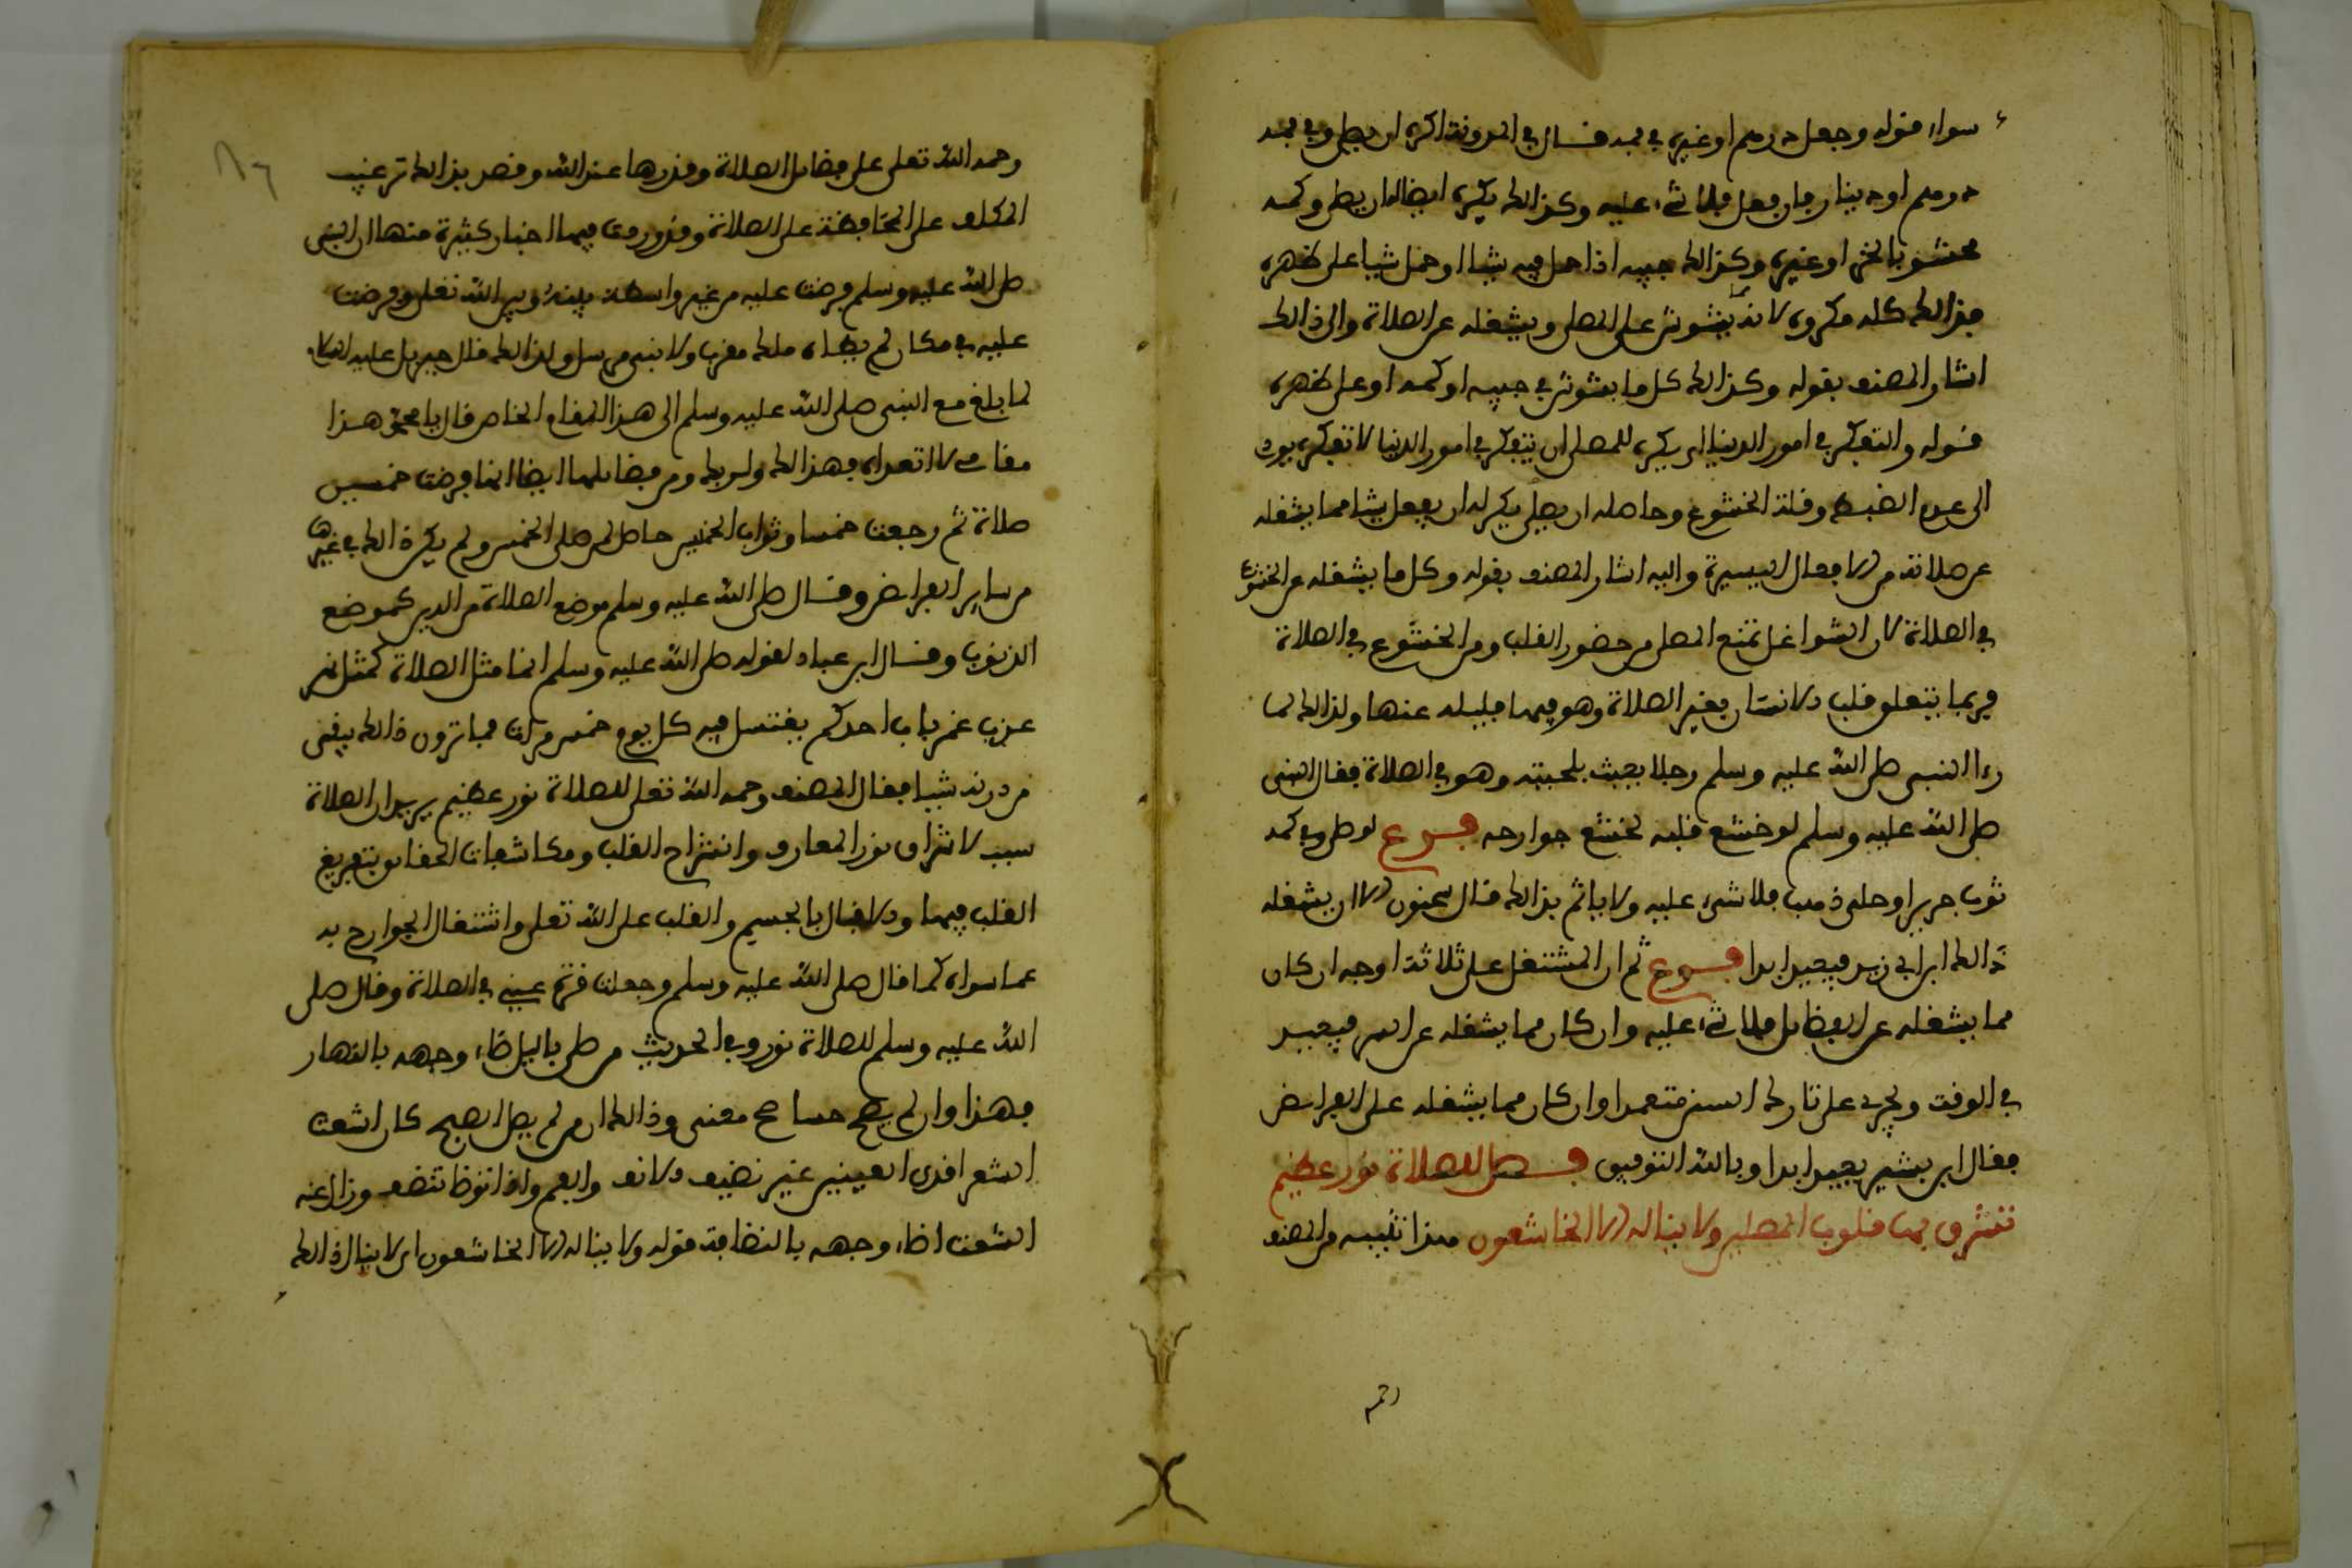 سواء قوله وجعل درهم او غيره في فمه قال في المدونة اكره ان يصلي وفي فمه
درهم او دينار فان فعل فلا شيء عليه وكذالك يكره ايضا ان يصلي وكمه
محشو بالخبز او غيره وكذالك جيبه اذا جعل فيه شيا او حمل شيا على ظهره
فذالك كله مكروه لانه يشوش على المصلي ويشغله عن الصلاة والى ذالك
اشار المصنف بقوله وكذالك كل ما يشوش في جيبه او كمه او على ظهره
قوله والتفكر في امور الدنيا اي يكره للمصلي ان يتفكر في امور الدنيا لان تفكره يودي
الى عدم الضبط وقلة الخشوع وحاصله ان يصلي يكره له ان يفعل شيا مما يشغله
عن صلاته من الافعال اليسيرة واليه اشار المصنف بقوله وكل ما يشغله عن الخشوع
في الصلاة لان الشواغل تمنع المصلي من حضور القلب ومن الخشوع في الصلاة
فربما يتعلق قلب الانسان بغير الصلاة وهو فيها فيلبسه عنها ولذالك لما
رءا النبي صلى الله عليه وسلم رجلا يعبث بلحيته وهو في الصلاة فقال النبي
صلى الله عليه وسلم لو خشع قلبه لخشع جوارحه فرع لو صلى وفي كمه
ثوب حرير او حلي ذهب فلا شيء عليه ولا ياثم بذالك قال سحنون الا ان يشغله
ذالك ابن ابي زيد فيعيد ابدا فرع ثم ان المشتغل على ثلاثة اوجه ان كان
مما يشغله عن الفضايل فلا شيء عليه وان كان مما يشغله عن السنن فيعيد
في الوقت ويجري على تارك السنن متعمدا وان كان مما يشغله على الفرايض
فقال ابن بشير يعيد ابدا وبالله التوفيق فصل للصلاة نور عظيم
تشرق بها قلوب المصلين ولا يناله الا الخاشعون هذا تنبيه من المصنف
رحمه
٨٦
رحمه الله تعلى على فضايل الصلاة وقدرها عند الله وقصد بذالك ترغيب
المكلف على المحافظة على الصلاة وقد روي فيها اخبار كثيرة منها ان النبي
صلى الله عليه وسلم فرضت عليه من غير واسطة بينه وبين الله تعلى وفرضت
عليه في مكان لم يطاه ملك مقرب ولا نبي مرسل ولذالك قال جبريل عليه السلام
لما بلغ مع النبي صلى الله عليه وسلم الى هذا المقام الخاص قال يا محمد هذا
مقامي لا اتعداه فهذا لك ولربك ومن فضايلها ايضا انها فرضت خمسين
صلاة ثم رجعت خمسا وثواب الخمسين حاصل لمن صلى الخمس ولم يكن ذالك في غيرها
من ساير الفرايض وقال صلى الله عليه وسلم موضع الصلاة من الدين كموضع
الذنوب وقال ابن عباد لقوله صلى الله عليه وسلم انما مثل الصلاة كمثل نهر
عذب غمر بباب احدكم يغتسل فيه كل يوم خمس مرات فما ترون ذالك يبقي
من درنه شيا فقال المصنف رحمه الله تعلى للصلاة نور عظيم يريد ان الصلاة
سبب لاشراق نور المعارف وانشراح القلب ومكاشفات الحقايق بتفريغ
القلب فيها والاقبال بالجسم والقلب على الله تعلى واشتغال الجوارح به
عما سواه كما قال صلى الله عليه وسلم وجعلت قرة عيني في الصلاة وقال صلى
الله عليه وسلم للصلاة نور وفي الحديث من صلى باليل ضاء وجهه بالنهار
فهذا وان لم يصح حسا صح معنى وذالك ان من لم يصل الصبح كان اشعث
الشعر اقذى العينين غير نضيف الانف والفم واذا توضا تنضف وزال عنه
الشعث اضاء وجهه بالنضافة قوله ولا يناله الا الخاشعون اي لا ينال ذالك